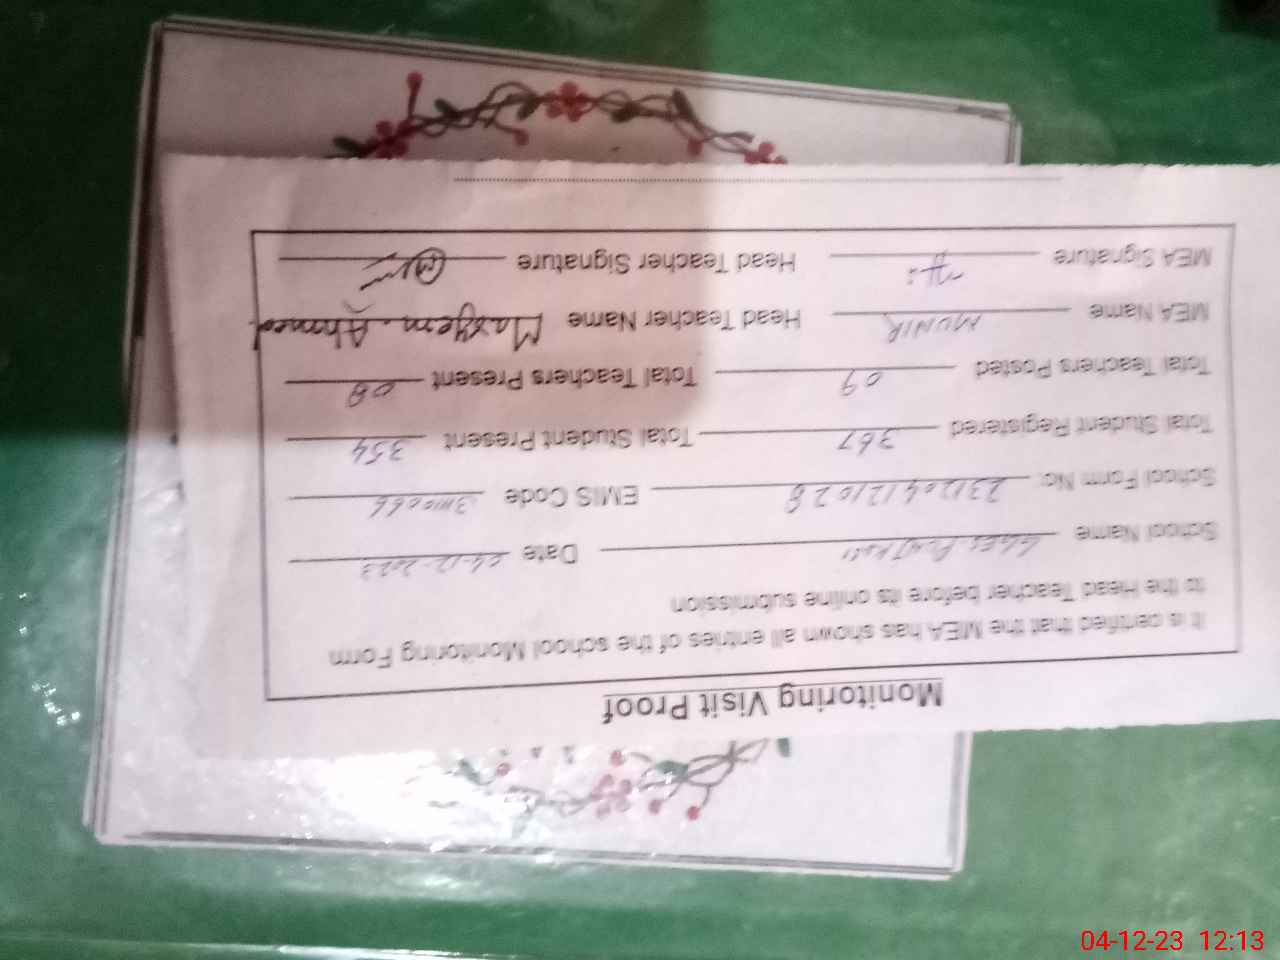 Monitoring Visit Proof
It is certified that the MEA has shown all entries of the school Monitoring Form
to the Head Teacher before its online submission
School Name GGES Date 04-12-2023
School Form No. 231204121028 EMIS Code
Total Student Registered 367 Total Student Present 354
Total Teachers Posted 09 Total Teachers Present 08
MEA Name MUNIR Head Teacher Name Maryem Ahmed
MEA Signature Head Teacher Signature
04-12-23 12:13